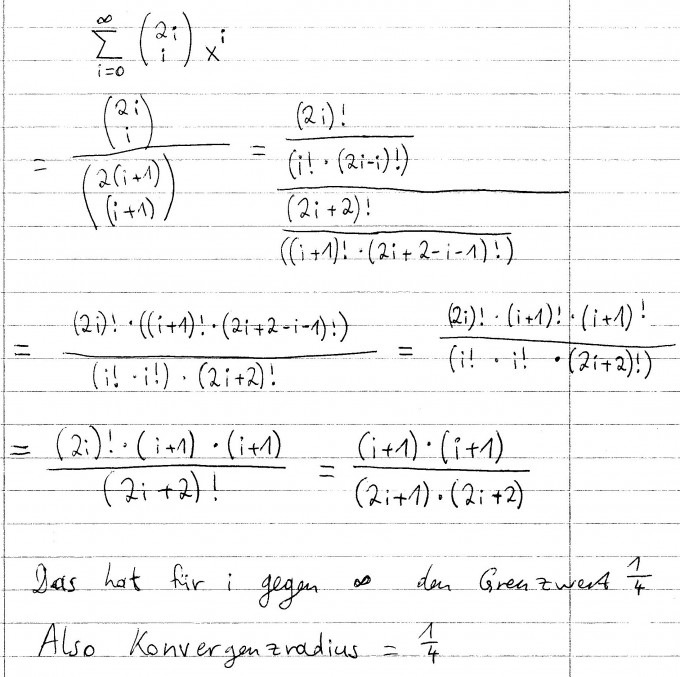 ∑_{i=0}^{∞} (2i über i) x^i
= (2i über i) / (2(i+1) über (i+1)) = ((2i)! / (i! · (2i-i)!)) / ((2i+2)! / ((i+1)! · (2i+2-i-1)!))
= ((2i)! · ((i+1)! · (2i+2-i-1)!)) / ((i! · i!) · (2i+2)!) = ((2i)! · (i+1)! · (i+1)!) / (i! · i! · (2i+2)!)
= ((2i)! · (i+1) · (i+1)) / (2i+2)! = ((i+1) · (i+1)) / ((2i+1) · (2i+2))
Das hat für i gegen ∞ den Grenzwert 1/4
Also Konvergenzradius = 1/4